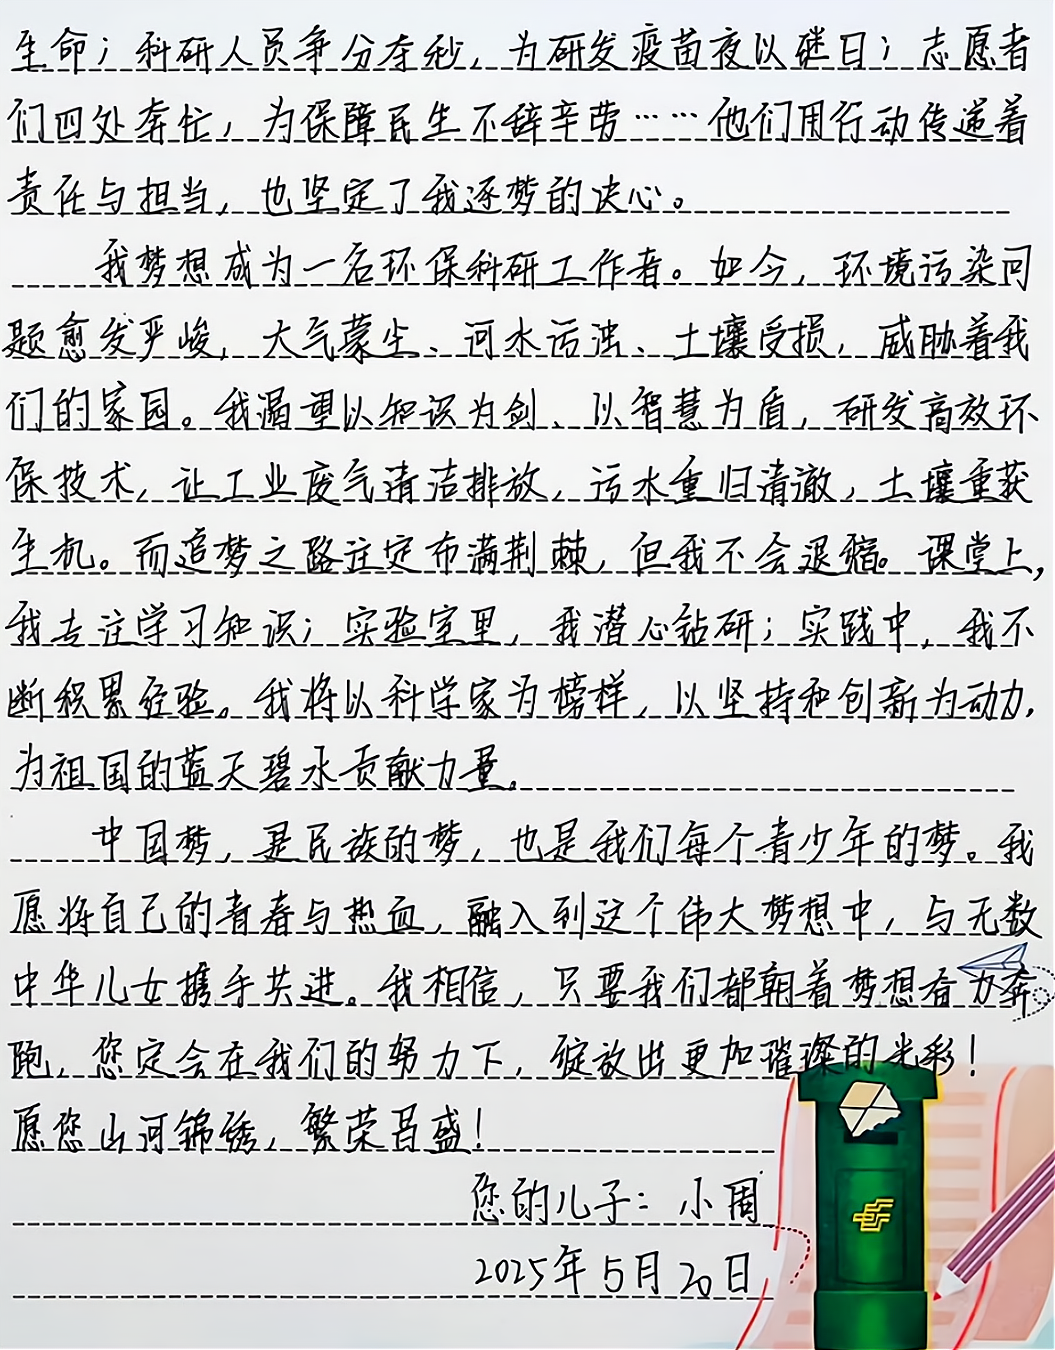 生命；科研人员争分夺秒，为研发疫苗夜以继日；志愿者
们四处奔忙，为保障民生不辞辛劳……他们用行动传递着
责任与担当，也坚定了我逐梦的决心。
我梦想成为一名环保科研工作者。如今，环境污染问
题愈发严峻，大气蒙尘、河水污浊、土壤受损，威胁着我
们的家园。我渴望以知识为剑、以智慧为盾，研发高效环
保技术，让工业废气清洁排放，污水重归清澈，土壤重获
生机。而追梦之路注定布满荆棘，但我不会退缩。课堂上，
我专注学习知识；实验室里，我潜心钻研；实践中，我不
断积累经验。我将以科学家为榜样，以坚持和创新为动力，
为祖国的蓝天碧水贡献力量。
中国梦，是民族的梦，也是我们每个青少年的梦。我
愿将自己的青春与热血，融入到这个伟大梦想中，与无数
中华儿女携手共进。我相信，只要我们都朝着梦想奋力奔
跑，您定会在我们的努力下，绽放出更加璀璨的光彩！
愿您山河锦绣，繁荣昌盛！
您的儿子：小周
2025年5月20日